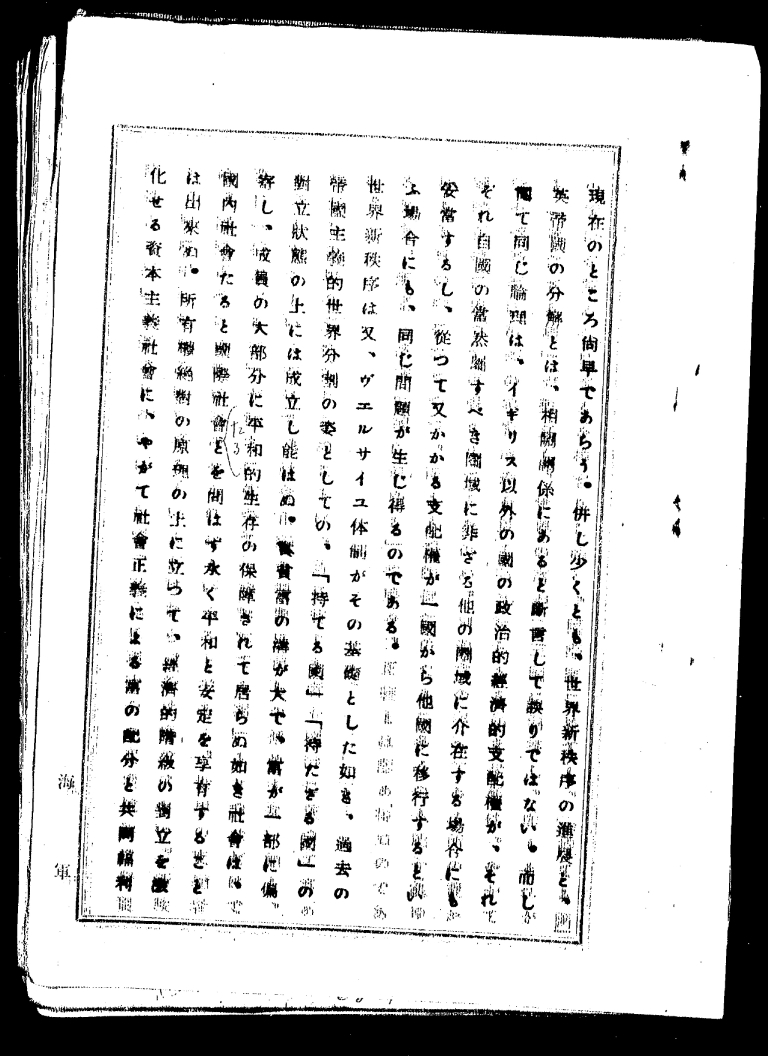 現在のところ尚早であらう。併し少くとも、世界新秩序の進展と、
英帝國の分解とは、相關關係にあると斷言して誤りではない。而し
て同じ論理は、イギリス以外の國の政治的經濟的支配權が、それ
ぞれ自國の當然屬すべき圈域に非ざる他の圈域に介在する場合にも
妥當するし、從つて又かかる支配權が一國から他國に移行するとい
ふ場合にも、同じ問題が生じ得るのである。
世界新秩序は又、ヴエルサイユ体制がその基礎とした如き、過去の
帝國主義的世界分割の姿としての、「持てる國」「持たざる國」の
對立狀態の上には成立し能はぬ。貧富の溝が大で、富が一部に偏
寄し、成員の大部分に平和的生存の保障されて居らぬ如き社會は、
國內社會たると國際社會とを問はず永く平和と安定を享有すること
は出來ぬ。所有權絕對の原理の上に立つて、經濟的階級の對立を激
化せる資本主義社會に、やがて社會正義による富の配分と共同福利
たる
海軍